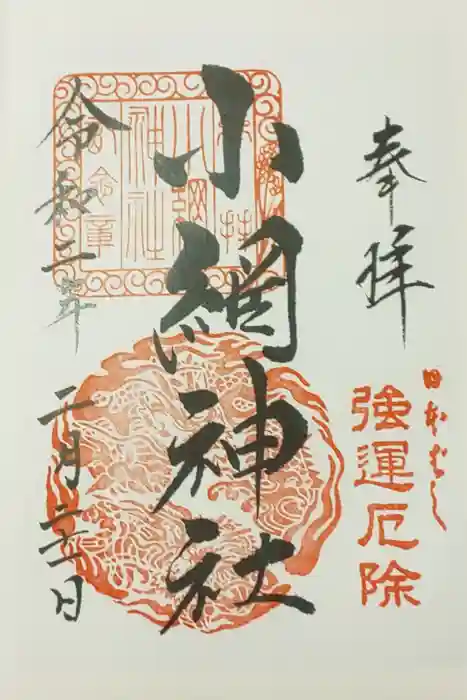 奉拝
日本ばし
強運厄除
小網神社
令和三年
二月 日
小網
神社